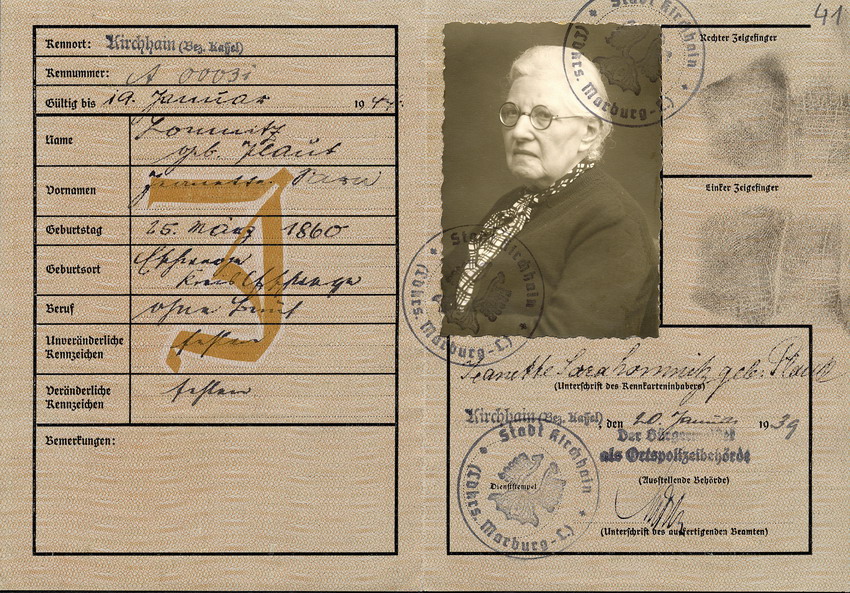 Kennort: Kirchhain (Bez. Kassel)
Kennnummer: A 00031
Gültig bis 19. Januar 1944.
Name Lomnitz
geb. Plaut
Vornamen Jeanette Sara
J
Geburtstag 25. März 1860
Geburtsort
Kreis
Beruf ohne Beruf
Unveränderliche
Kennzeichen fehlen
Veränderliche
Kennzeichen fehlen
Bemerkungen:
41
Stadt Kirchhain
(Bhrs. Marburg-L.)
Rechter Zeigefinger
Linker Zeigefinger
Stadt Kirchhain
(Bhrs. Marburg-L.)
Jeanette Sara Lomnitz geb. Plaut
(Unterschrift des Kennkarteninhabers)
Kirchhain (Bez. Kassel), den 20. Januar 1939
Der Bürgermeister
als Ortspolizeibehörde
(Ausstellende Behörde)
Stadt Kirchhain
(Bhrs. Marburg-L.)
Dienststempel
(Unterschrift des ausfertigenden Beamten)